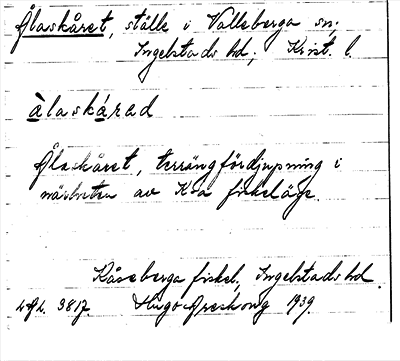 Ålaskåret, ställe i Valleberga sn;
Ingelstads hd, Krist. l.
àlaskárad
Ålaskåret, terrängfördjupning i
närheten av K-a fiskeläge.
Kåseberga fiskel., Ingelstads hd.
Hugo Areskoug 1939.